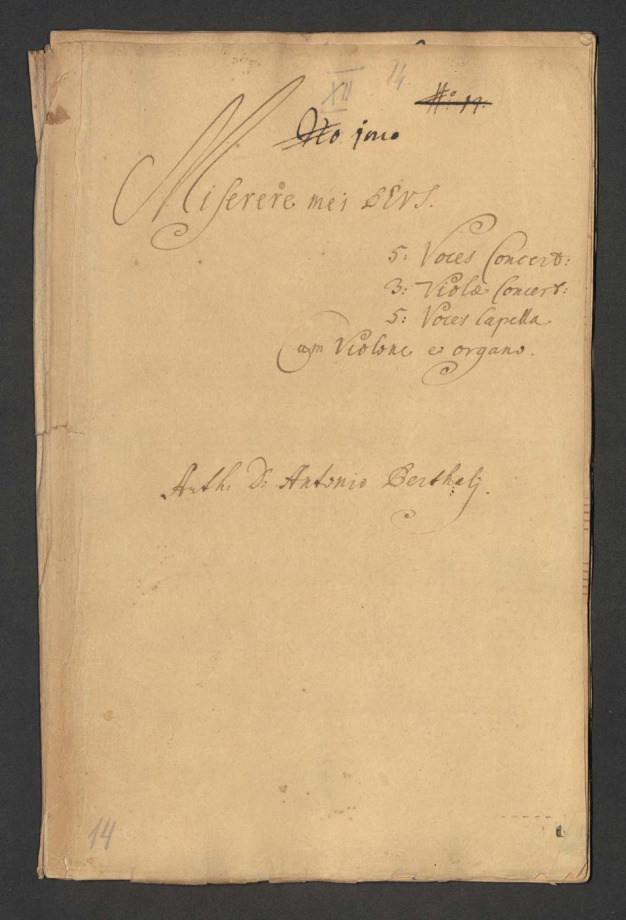 XII 14.
No: 17.
No. jmo
Miserere mei DEVS.
5: Voces Concert:
3: Violæ Concert:
5: Voces Capella
cum Violone e organo.
Auth: D: Antonio Berthalj.
14